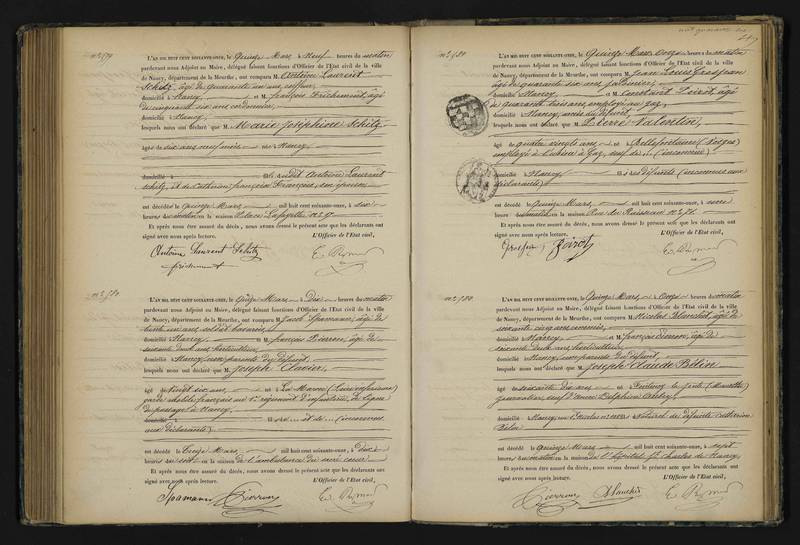 n° 579
L'AN MIL HUIT CENT SOIXANTE-ONZE, le Quinze Mars à Neuf heures du matin
pardevant nous Adjoint au Maire, délégué faisant fonctions d'Officier de l'Etat civil de la ville
de Nancy, département de la Meurthe, ont comparu M. Antoine Laurent
Schitz, âgé de quarante un ans, coiffeur,
domicilié à Nancy, et M. François Frichement, âgé
de cinquante six ans, cordonnier,
domicilié à Nancy,
lesquels nous ont déclaré que M. Marie Joséphine Schitz,
âgée de six ans neuf mois, née à Nancy
domicilié à fille du dit Antoine Laurent
Schitz, et de Catherine Françoise François, son épouse
est décédée le Quinze Mars, mil huit cent soixante-onze, à six
heures du matin, en la maison Place Lafayette n° 9
Et après nous être assuré du décès, nous avons dressé le présent acte que les déclarants ont
signé avec nous après lecture. L'Officier de l'Etat civil,
Antoine Laurent Schitz
frichement
n° 580
L'AN MIL HUIT CENT SOIXANTE-ONZE, le Quinze Mars, à Dix heures du matin
pardevant nous Adjoint au Maire, délégué faisant fonctions d'Officier de l'Etat civil de la ville
de Nancy, département de la Meurthe, ont comparu M. Jacob Spamann, âgé de
trente un ans, soldat bavarois,
domicilié à Nancy, et M. François Pierron, âgé de
soixante deux ans, horticulteur,
domicilié à Nancy, non parents du défunt,
lesquels nous ont déclaré que M. Joseph Clavier,
âgé de vingt six ans, né à La Marne (Loire inférieure)
garde mobile français au 1er régiment d'infanterie de ligne
de passage à Nancy,
domicilié à fils de ... et de ... (inconnus
aux déclarants)
est décédé le Treize Mars, mil huit cent soixante-onze, à
heures du soir en la maison de l'ambulance du sacré coeur
Et après nous être assuré du décès, nous avons dressé le présent acte que les déclarants ont
signé avec nous après lecture. L'Officier de l'Etat civil,
Spamann Pierron
L'AN MIL HUIT CENT SOIXANTE-ONZE, le Quinze Mars, onze heures du matin
pardevant nous Adjoint au Maire, délégué faisant fonctions d'Officier de l'Etat civil de la ville
de Nancy, département de la Meurthe, ont comparu M. Jean Louis Grosjean
âgé de quarante six ans,
domicilié à Nancy, et M. Constant Poirot, âgé
de quarante trois ans, employé au gaz,
domicilié à Nancy, amis du défunt,
lesquels nous ont déclaré que M. Pierre Valentin,
âgé de quatre vingts ans, né à Bellefontaine (Vosges)
employé à l'usine à gaz, veuf de ... (inconnue)
domicilié à Nancy, fils de défunts (inconnus aux
déclarants)
est décédé le quinze Mars, mil huit cent soixante-onze, à
heures du matin, en la maison Rue du Ruisseau n°
Et après nous être assuré du décès, nous avons dressé le présent acte que les déclarants ont
signé avec nous après lecture. L'Officier de l'Etat civil,
Grosjean Poirot
L'AN MIL HUIT CENT SOIXANTE-ONZE, le Quinze Mars, à Onze heures du matin
pardevant nous Adjoint au Maire, délégué faisant fonctions d'Officier de l'Etat civil de la ville
de Nancy, département de la Meurthe, ont comparu M. Nicolas Blanchet, âgé de
soixante cinq ans,
domicilié à Nancy, et M. François Pierron, âgé de
soixante deux ans, horticulteur,
domicilié à Nancy, non parents du défunt,
lesquels nous ont déclaré que M. Joseph Claude Bétin
âgé de soixante dix ans, né à (Meurthe)
domicilié à Nancy, fils de
est décédé le quinze Mars, mil huit cent soixante-onze, à sept
heures du matin en la maison de l'hôpital St Charles de Nancy,
Et après nous être assuré du décès, nous avons dressé le présent acte que les déclarants ont
signé avec nous après lecture. L'Officier de l'Etat civil,
Pierron Blanchet